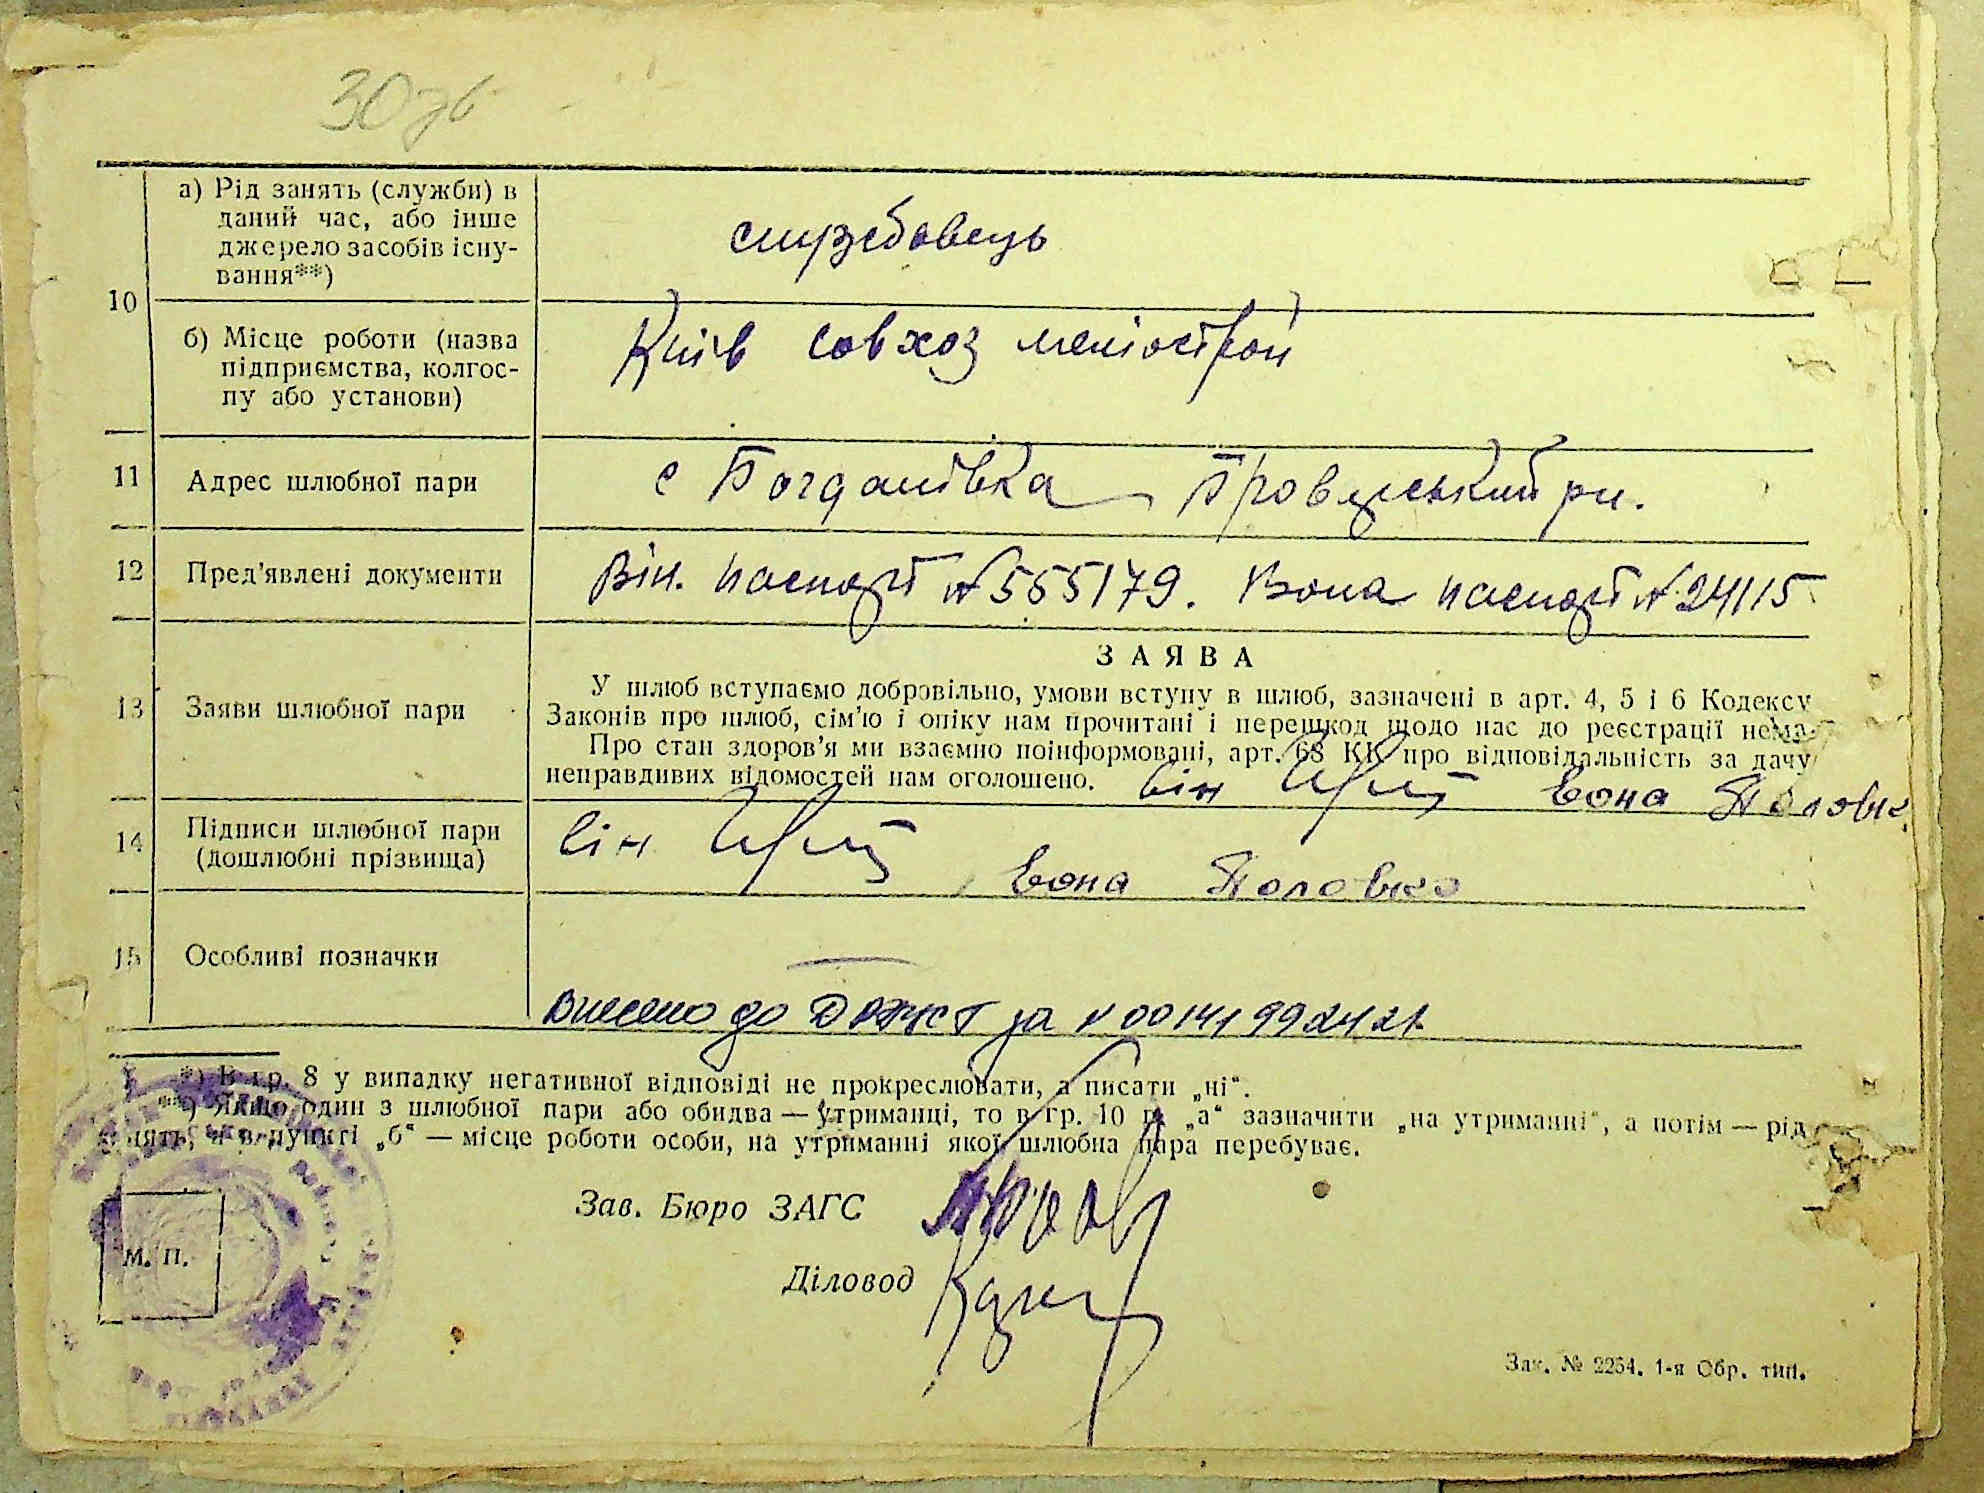 30
а) Рід занять (служби) в
даний час, або інше
джерело засобів існу-
вання**)
службовець
10
б) Місце роботи (назва
підприємства, колгос-
пу або установи)
Київ совхоз
11 Адрес шлюбної пари с Богданівка Броварський рн.
12 Пред'явлені документи Він. паспорт № 555179. Вона паспорт № 24115
ЗАЯВА
13 Заяви шлюбної пари
У шлюб вступаємо добровільно, умови вступу в шлюб, зазначені в арт. 4, 5 і 6 Кодексу
Законів про шлюб, сім'ю і опіку нам прочитані і перешкод щодо нас до реєстрації нема.
Про стан здоров'я ми взаємно поінформовані, арт. 68 КК про відповідальність за дачу
неправдивих відомостей нам оголошено. Він Вона
14 Підписи шлюбної пари
(дошлюбні прізвища)
Він Вона
15 Особливі позначки
Внесено до ДРАЦСГ за № 00141992421.
*) В гр. 8 у випадку негативної відповіді не прокреслювати, а писати „ні“.
**) Якщо один з шлюбної пари або обидва — утриманці, то в гр. 10 п. „а“ зазначити „на утриманні“, а потім — рід
занять, а в пункті „б“ — місце роботи особи, на утриманні якої шлюбна пара перебуває.
Зав. Бюро ЗАГС
М. П.
Діловод
Зак. № 2254. 1-я Обр. тип.